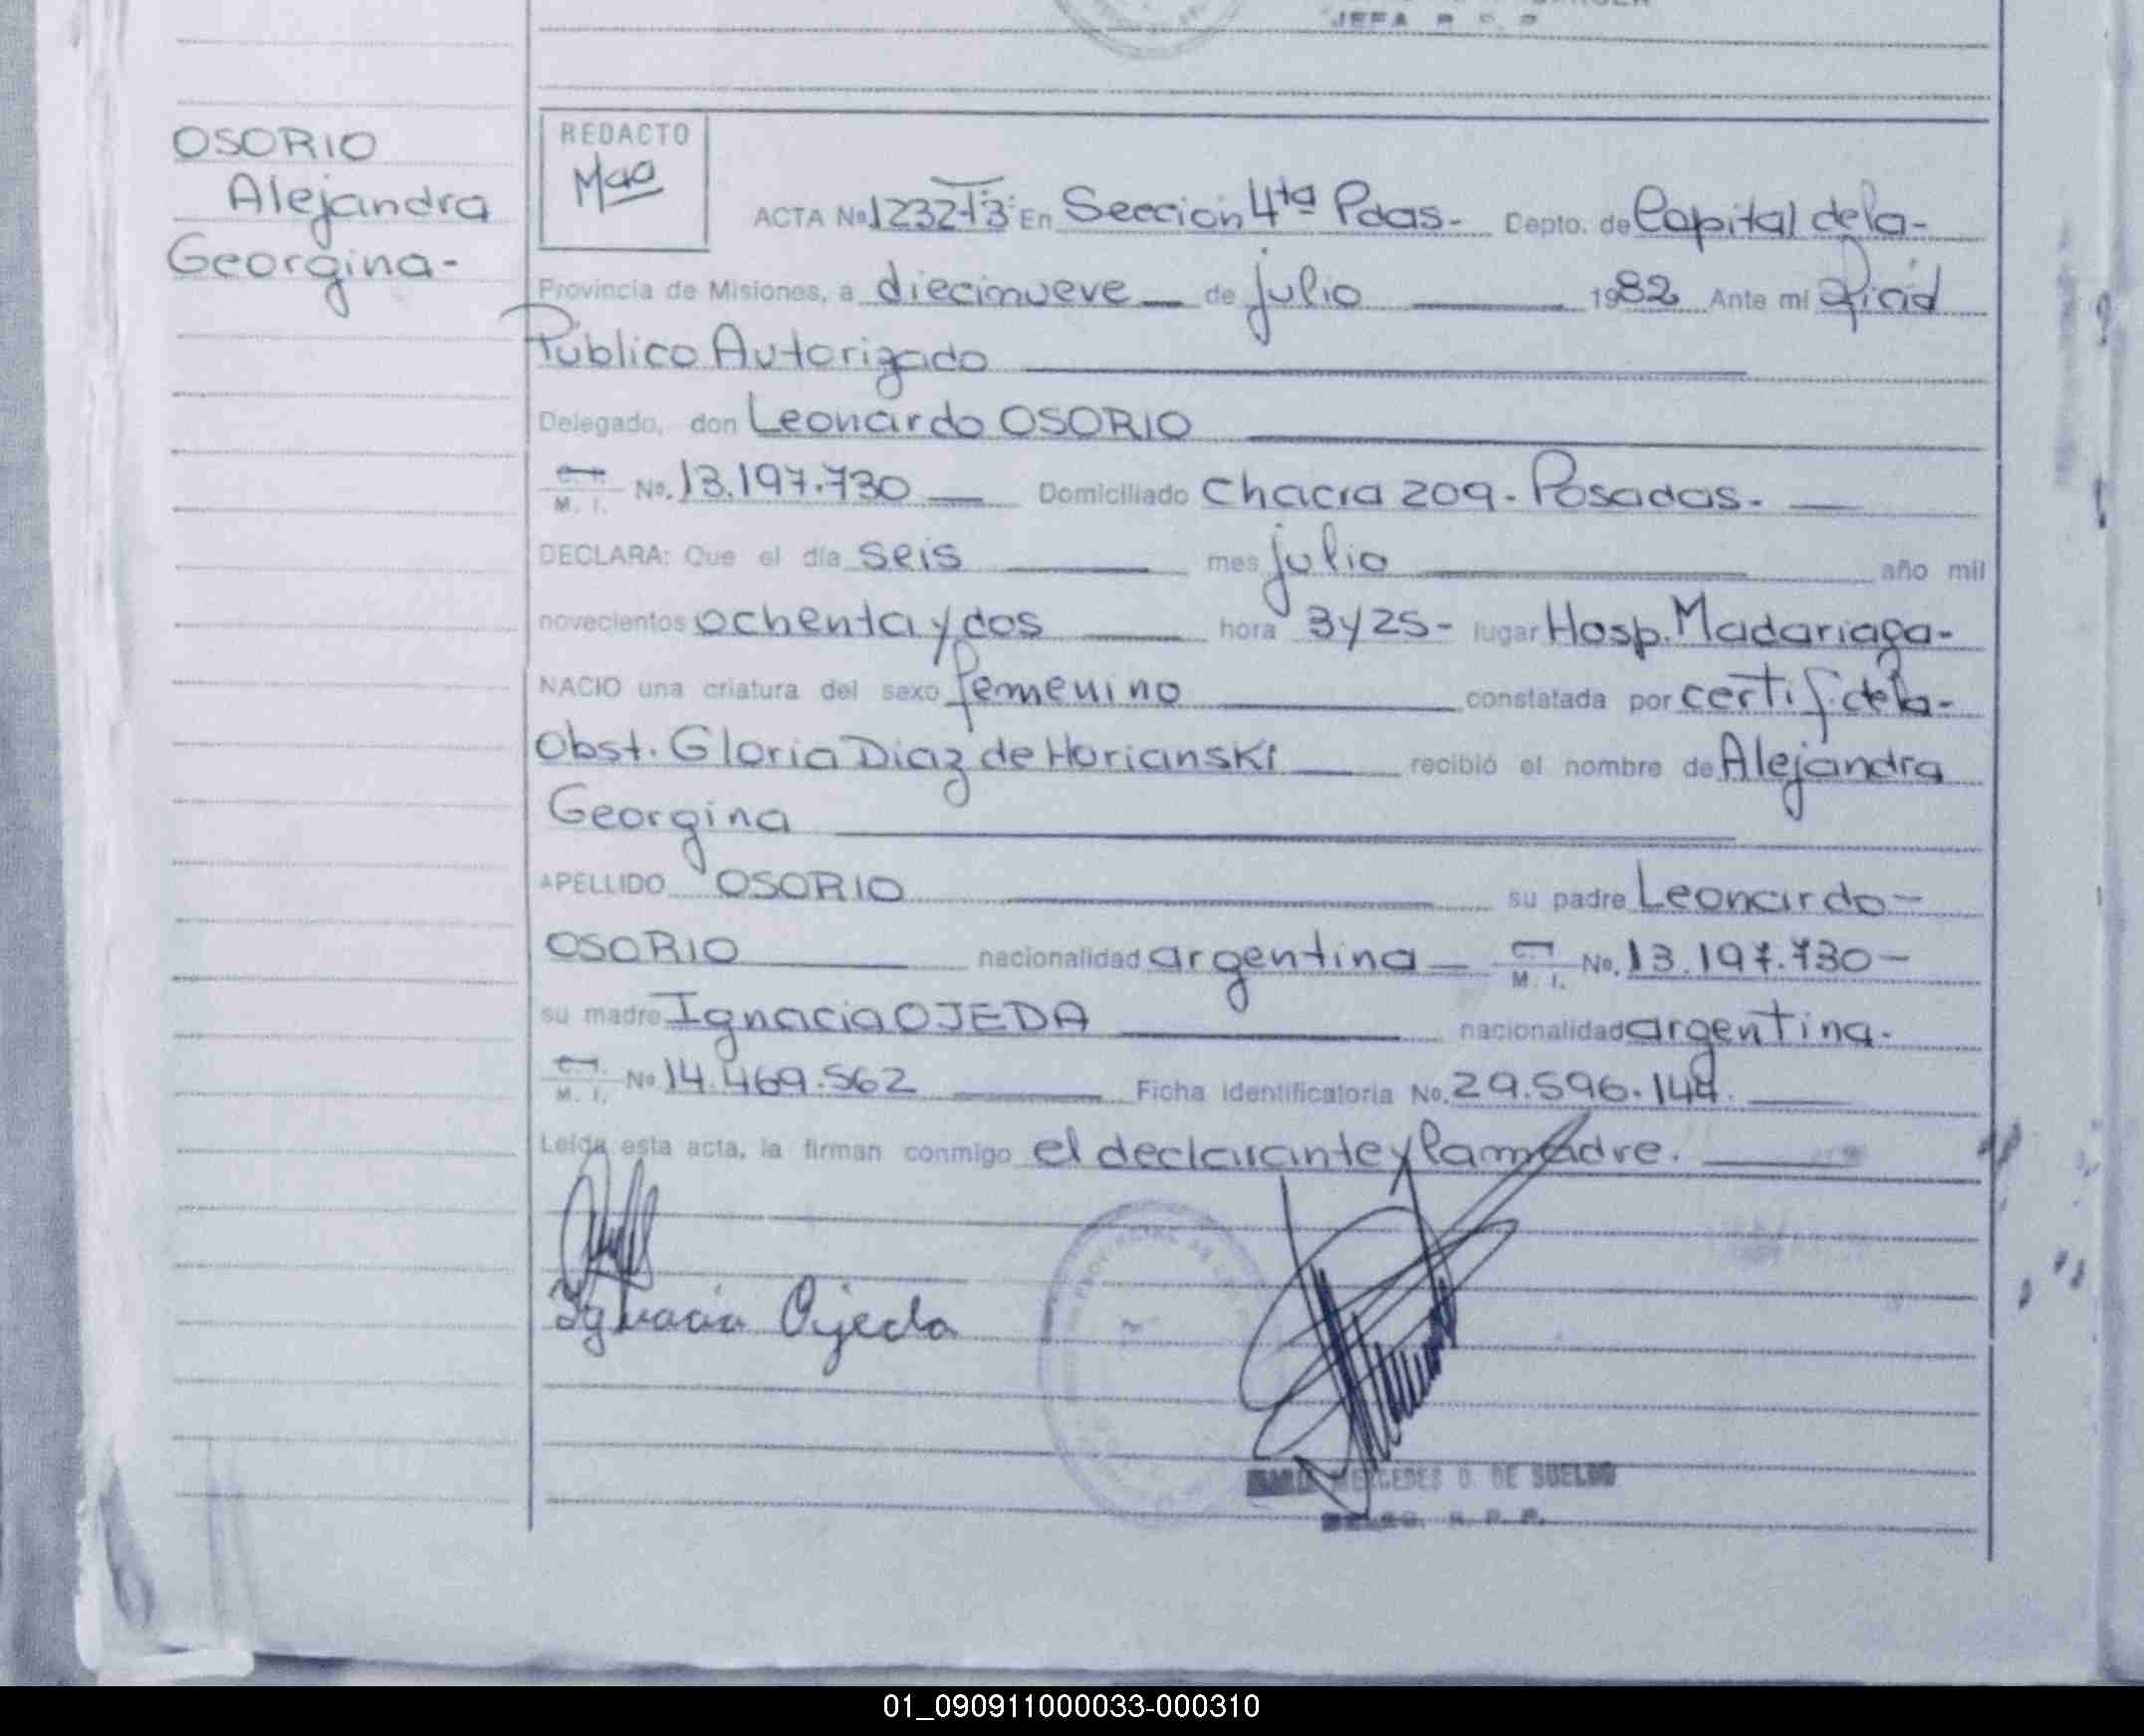 JEFA R. P. P.
OSORIO
Alejandra
Georgina-
REDACTO
Mao
ACTA No 1232-T3: En Seccion 4ta Pdas.- Depto. de Capital de la-
Provincia de Misiones, a diecinueve de julio 1982 Ante mi Oficial
Público Autorizado
Delegado, don Leonardo OSORIO
C. I. M. I. No. 13.197.730 Domiciliado Chacra 209.- Posadas.-
DECLARA: Que el día seis mes julio año mil
novecientos ochenta y dos hora 3 y 25- lugar Hosp. Madariaga-
NACIO una criatura del sexo femenino constatada por certif. de la-
Obst. Gloria Diaz de Horianski recibió el nombre de Alejandra
Georgina
APELLIDO OSORIO su padre Leonardo-
OSORIO nacionalidad argentina C. I. M. I. No. 13.197.730-
su madre Ignacia OJEDA nacionalidad argentina.
C. I. M. I. No 14.469.562 Ficha identificatoria No. 29.596.149.
Leída esta acta, la firman conmigo el declarante y la madre.
Ignacia Ojeda
MERCEDES D. DE SUELDO
R. P. P.
01_090911000033-000310